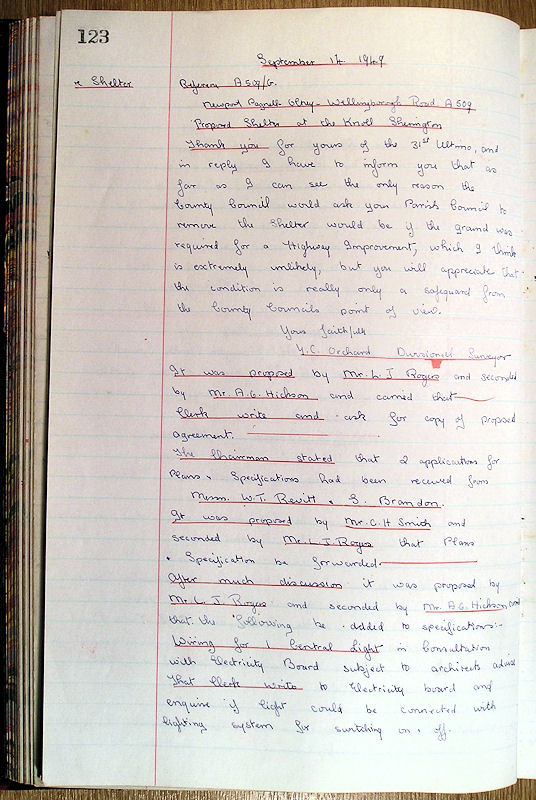 123
September 14 1949
re Shelter
Reference A509/G.
Newport Pagnell Olney - Wellingborough Road A509
Proposed Shelter at the Knoll Sherington
Thank you for yours of the 31st Ultmo, and
in reply I have to inform you that as
far as I can see the only reason the
County Council would ask your Parish Council to
remove the Shelter would be if the ground was
required for a Highway Improvement, which I think
is extremely unlikely, but you will appreciate that
the condition is really only a safeguard from
the County Councils point of view.
Yours faithfully
Y.C. Orchard Divisional Surveyor
It was proposed by Mr. L. J Rogers and seconded
by Mr. A.G. Hickson and carried that
Clerk write and ask for copy of proposed
agreement.
The Chairman stated that 2 applications for
Plans & Specifications had been received from
Messrs. W.T. Revitt & S. Brandon.
It was proposed by Mr. C.H Smith and
seconded by Mr. L.J. Rogers that Plans
& Specification be forwarded.
After much discussion it was proposed by
Mr. L. J. Rogers and seconded by Mr. A.G. Hickson and
that the following be added to specifications:-
Wiring for 1 Central Light in Consultation
with Electricity Board subject to architects advise
That Clerk write to Electricity board and
enquire if light could be connected with
lighting system for switching on & off.